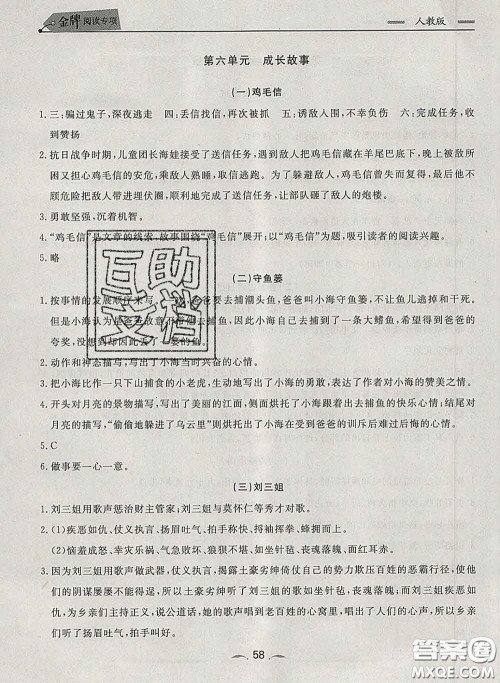 金牌阅读专项
人教版
第六单元 成长故事
(一)鸡毛信
1. 三:骗过鬼子,深夜逃走 四:丢信找信,再次被抓 五:诱敌入围,不幸负伤 六:完成任务,收
到赞扬
2. 抗日战争时期,儿童团长海娃接受了送信任务,遇到敌人把鸡毛信藏在羊尾巴底下,晚上被敌人所
困又担心鸡毛信的安危,乘敌人熟睡时逃走。为了躲避敌人,鸡毛信曾失而复得,最后他不
顾危险把敌人带进埋伏圈,顺利完成了送信任务,让部队炸了敌人的炮楼。
3. 勇敢坚强,沉着机智。
4. “鸡毛信”是文章的线索,故事围绕“鸡毛信”展开;以“鸡毛信”为题,吸引读者的阅读兴趣。
5. 略
互助文档
(二)守鱼篓
1. 按事情的发展顺序来写,爸爸要去捕潮头鱼,爸爸叫小海守鱼篓,不让鱼儿逃掉和干死。
但是小海认为是爸爸故意
自己去捕到了一条大鳍鱼,希望得到爸爸的
夸奖,没想到却因此丢了一篓的鱼。
2. 动作和神态描写,写出了小海当时兴奋的心情。
3. 把小海比作一只下山捕食的小老虎,生动地写出了小海的勇敢,表达了作者对小海的赞美之情。
4. 开头对月亮的景物描写,写出了美丽的江面,侧面烘托了小海去捕鱼的快乐心情;结尾对
月亮的描写,“偷偷地躲进了乌云里”则烘托出了小海在受到爸爸的训斥后难过的心情。
5. C
6. 做事要一心一意。
(三)刘三姐
1. 刘三姐用歌声惩治财主管家;刘三姐与莫怀仁等秀才对歌。
2. (1)疾恶如仇、仗义执言、扬眉吐气、拍手称快、捋袖挥拳、蜂拥而上。
(2)恼羞成怒、幸灾乐祸、气急败坏、狼狈不堪、如坐针毡、丧魂落魄、面红耳赤。
3. 因为刘三姐用歌声做武器,疾恶如仇、仗义执言,揭露土豪劣绅们欺压百姓的恶霸行径,使他
们的阴谋屡屡不能得逞。因此,土豪劣绅听了刘三姐的歌如坐针毡,丧魂落魄;而她疾恶如
仇,为乡亲们主持正义,说公道话,她的歌声唱到老百姓的心窝里,唱出了百姓的心声,所以乡
亲们扬眉吐气,拍手叫好。
58
答案圈
MXQE.COM